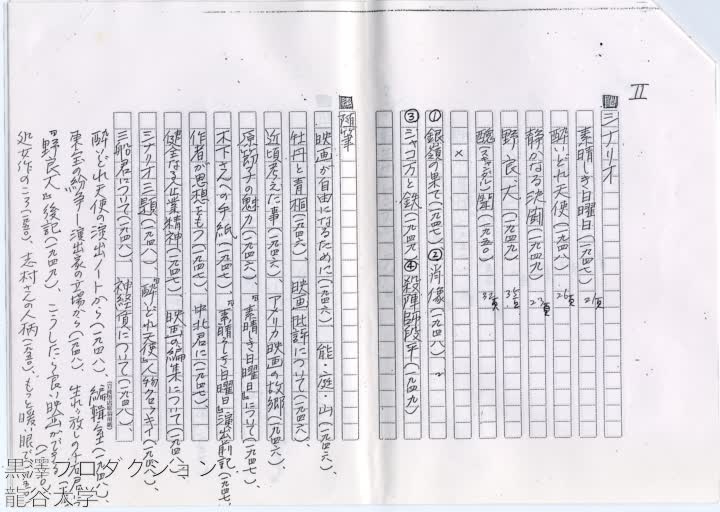 II
シナリオ
素晴しき日曜日(一九四七) 21頁
酔いどれ天使(一九四八) 26頁
静かなる決闘(一九四九) 23頁
野良犬(一九四九) 35頁
醜聞(スキャンダル)(一九五〇) 32頁
×
①銀嶺の果て(一九四七) ②肖像(一九四八)
③ジャコ万と鉄(一九四九) ④殺陣師段平(一九四九)
随筆
映画が自由になるために(一九四六) 能・庭・山(一九四六)、
牡丹と青桐(一九四六) 映画批評について(一九四六)、
近頃考えた事(一九四六)、アメリカ映画の故郷(一九四六)、
原節子の魅力(一九四六)、『素晴しき日曜日』について(一九四七)、
木下さんへの手紙(一九四七)、『素晴らしき日曜日』演出前記(一九四七)、
作者が思想をもつ(一九四七) 中北君に(一九四七)
健全なる企業精神(一九四七)、映画の編集について(一九四八)、
シナリオ三題(一九四八)、『酔いどれ天使』人物クロッキイ(一九四八)、
三船君について(一九四八)、神経質について(一九四八)、
酔いどれ天使の演出ノートから(一九四八)、編輯室(一九四八)、
東宝の紛争―演出家の立場から(一九四八)、生れっ放しの
『野良犬』後記(一九四九)、こうしたら良い映画が
処女作のころ(一九五〇)、志村さんの人柄(一九五〇)、もっと暖い眼で
黒澤プロダクション
龍谷大学